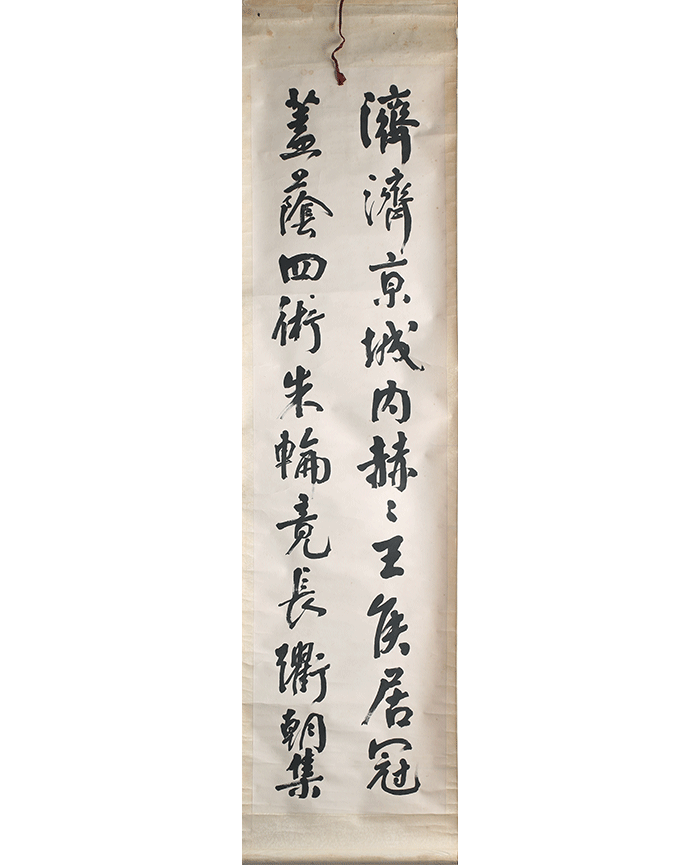 濟濟京城内赫〻王侯居冠
蓋蔭四術朱輪竟長衢朝集